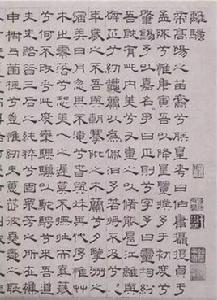 離騷
帝高陽之苗裔兮朕皇考曰伯庸攝提貞于
孟陬兮惟庚寅吾以降皇覽揆余初度兮
肇錫余以嘉名名余曰正則兮字余曰靈均紛
吾既有此內美兮又重之以脩能扈江離與
辟芷兮紉秋蘭以為佩汩余若將不及兮恐
年歲之不吾與朝搴阰之木蘭兮夕攬洲之
宿莽日月忽其不淹兮春與秋其代序惟草
木之零落兮恐美人之遲暮不撫壯而棄穢
兮何不改乎此度乘騏驥以馳騁兮來吾道
夫先路昔三后之純粹兮固眾芳之所在雜
申椒與菌桂兮豈維紉夫蕙茝彼堯舜之耿